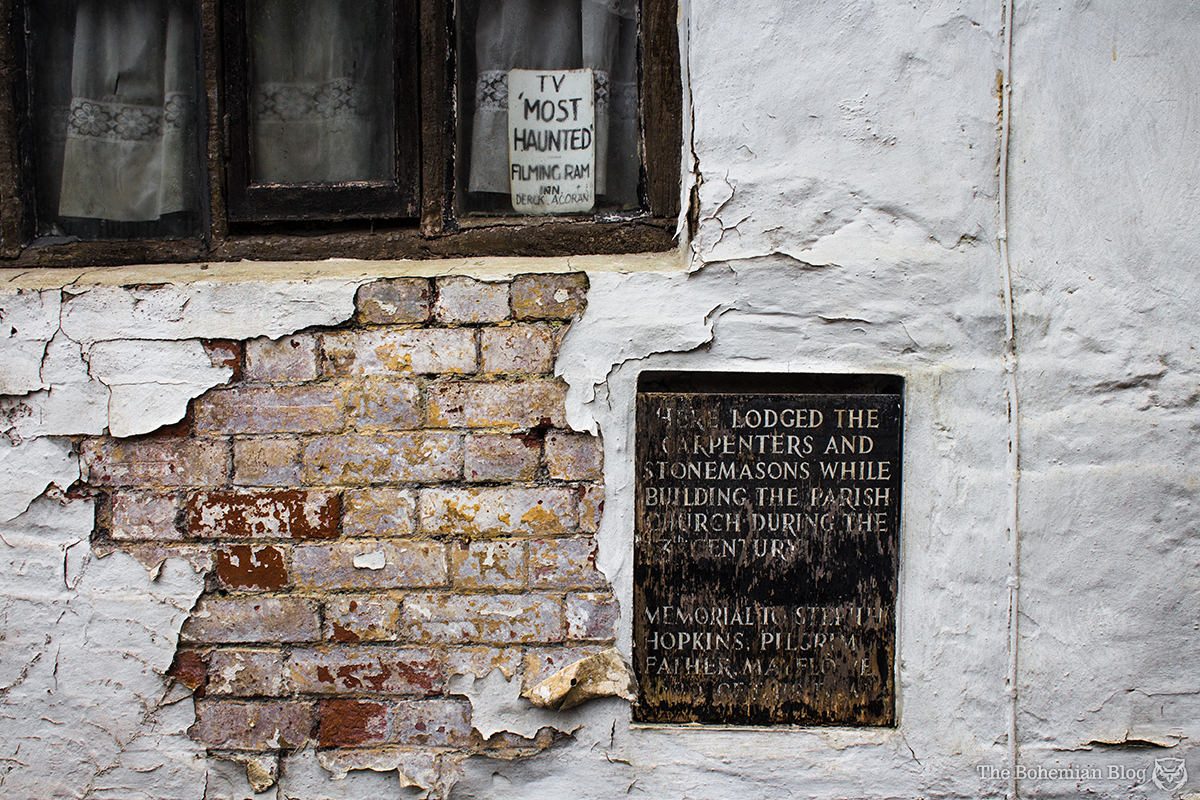 TV
'MOST
HAUNTED'
FILMING RAM
INN
DEREK ACORAN
HERE LODGED THE
CARPENTERS AND
STONEMASONS WHILE
BUILDING THE PARISH
CHURCH DURING THE
CENTURY
MEMORIAL TO STEPHEN
HOPKINS. PILGRIM
FATHER, MAYFLOWER
The Bohemian Blog